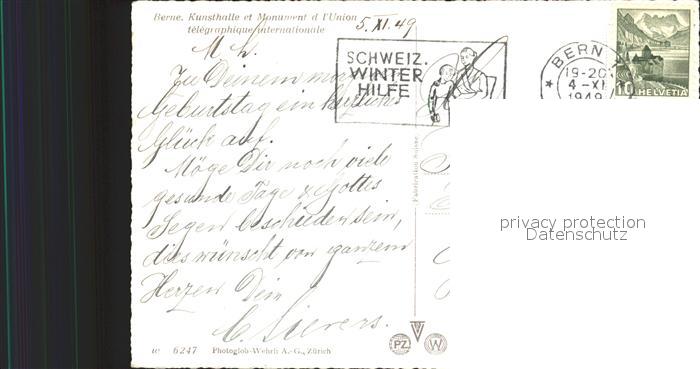 Berne. Kunsthalle et Monument d l'Union
télégraphique internationale
5. XI. 49
M. h.
SCHWEIZ.
WINTER
HILFE
BERN
19-20
4-XI
1949
10 HELVETIA
Zu Deinem
Geburtstag ein herzliches
Glück auf.
Möge Dir noch viele
gesunde Tage & Gottes
Segen beschieden sein,
dies wünscht von ganzem
Herzen Dein
C. Sievers.
Fabrication Suisse
privacy protection
Datenschutz
PZ W
w 6247 Photoglob-Wehrli A.-G., Zürich